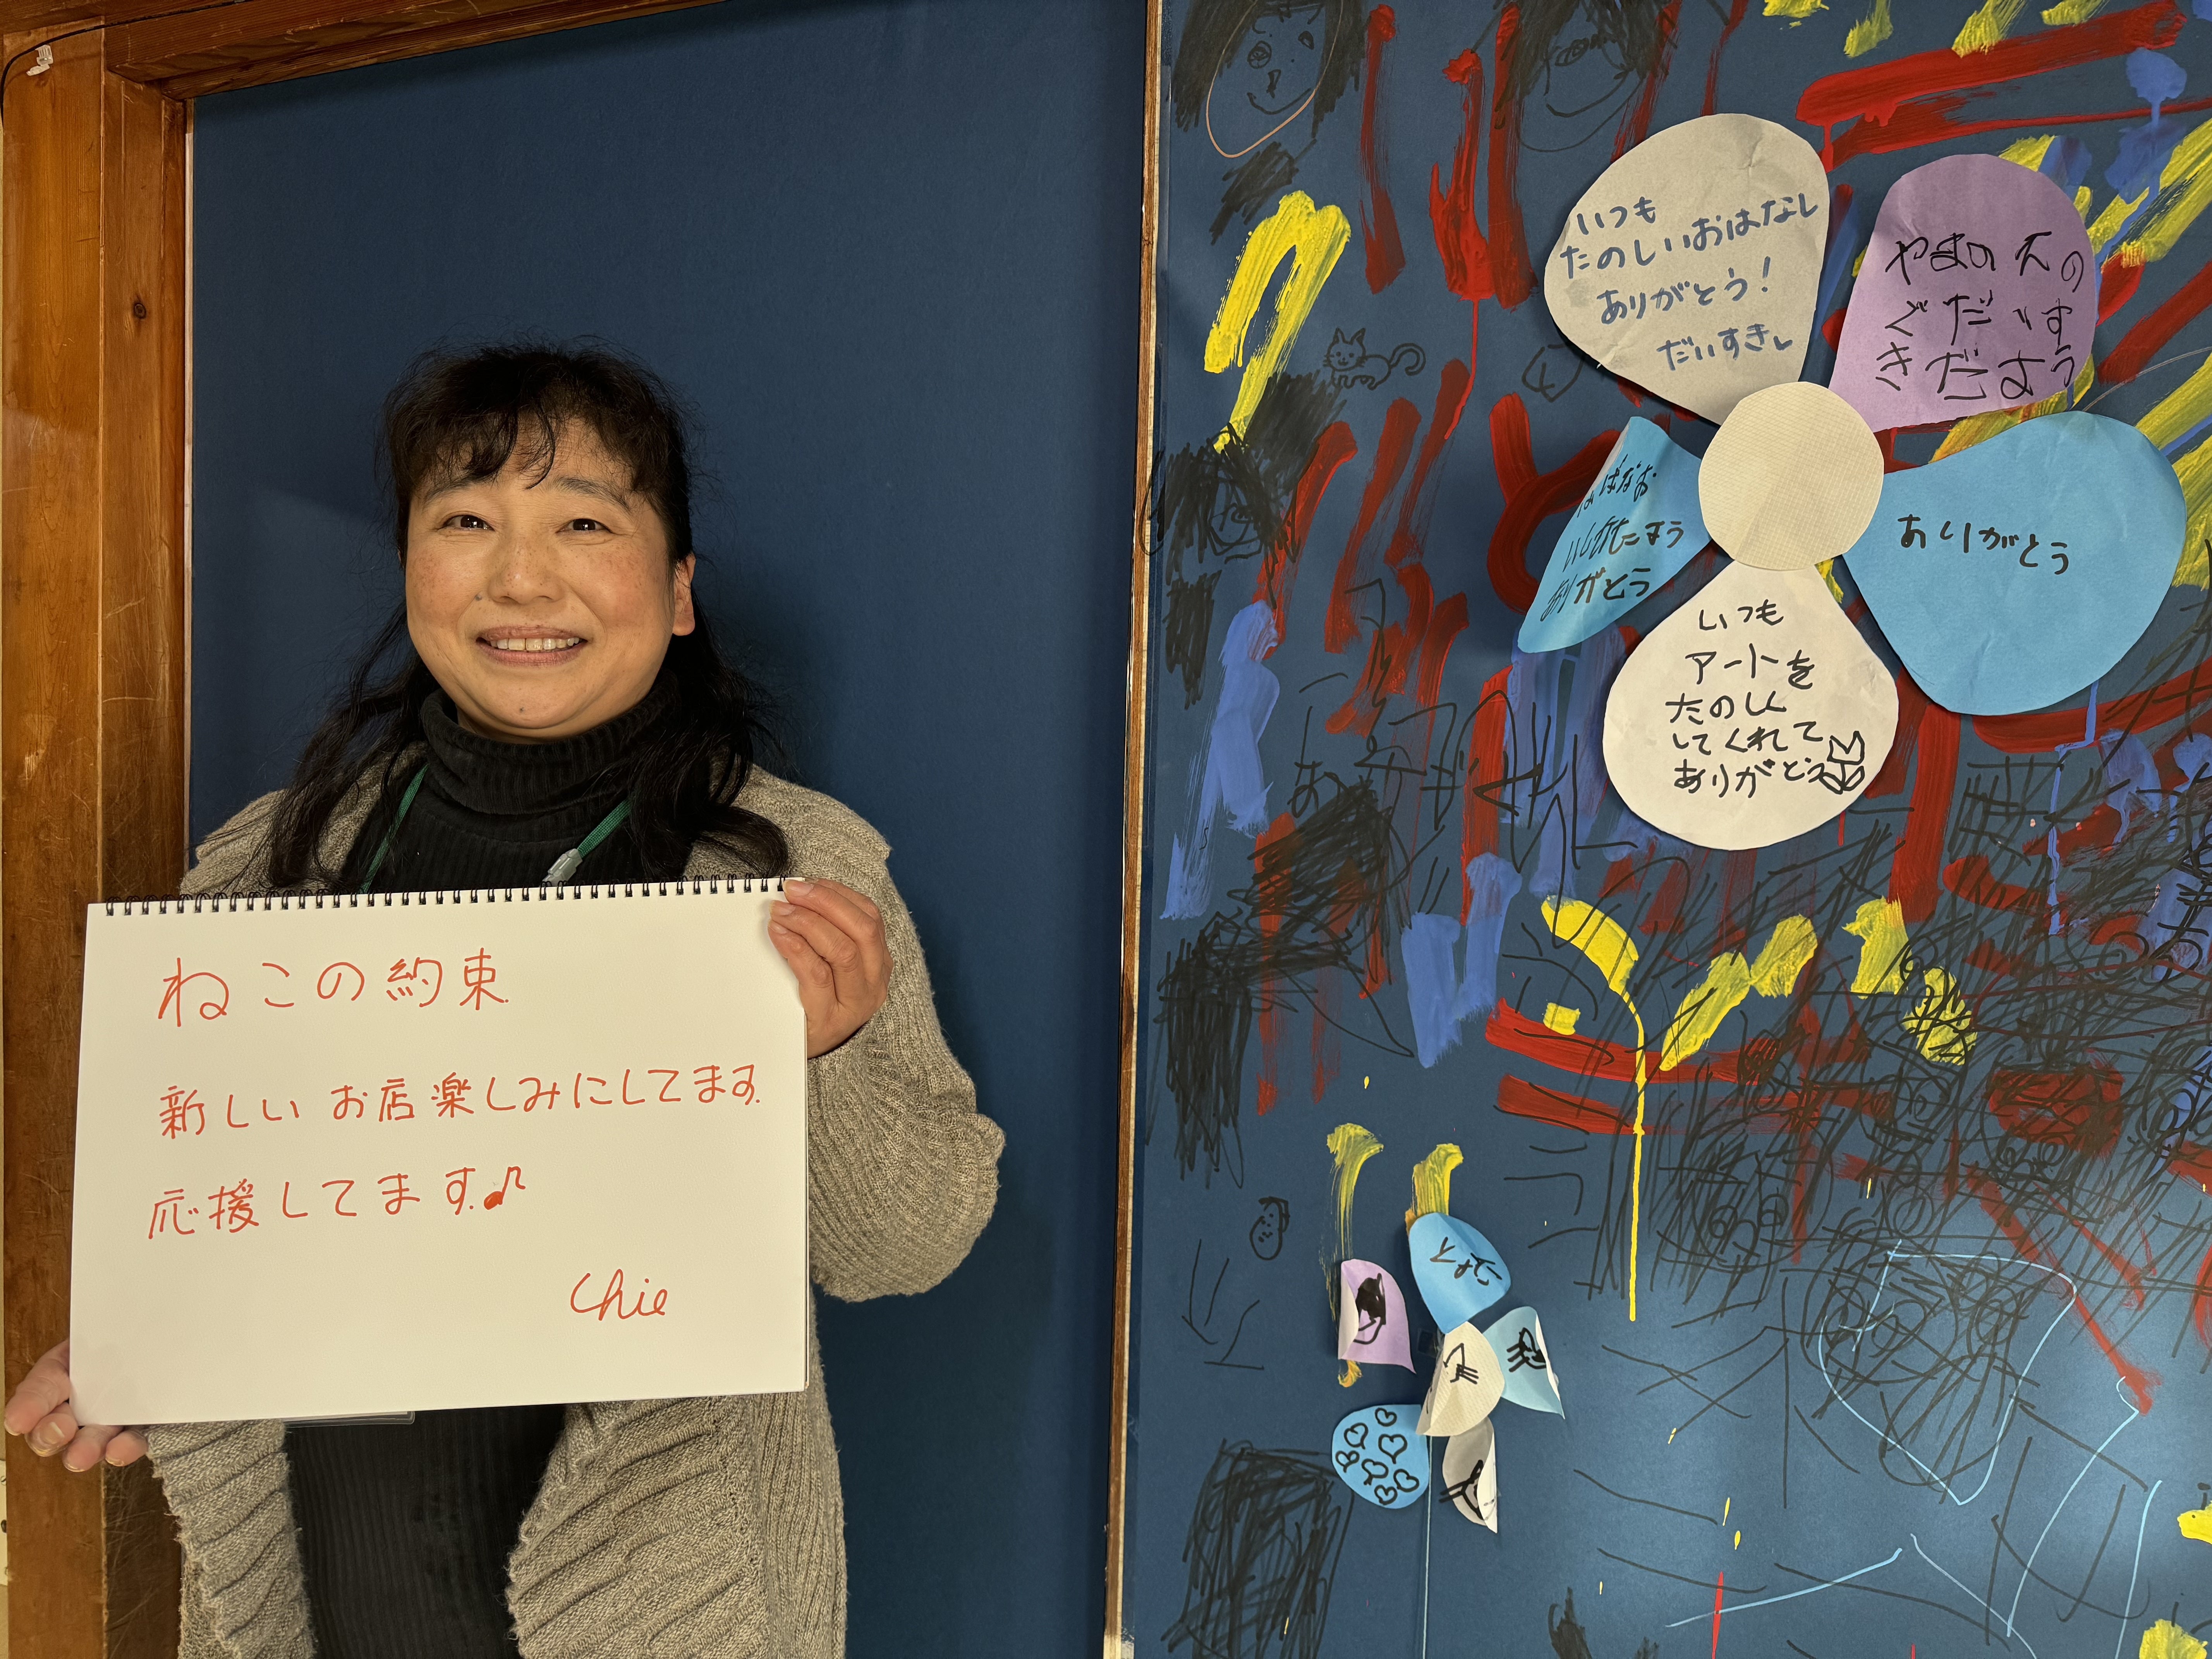 ねこの約束
新しいお店楽しみにしてます。
応援してます。♪
Chie
いつも
たのしいおはなし
ありがとう!
だいすき
やまのえの
ぐだいす
きだよう
ありがとう
いつも
アートを
たのしく
してくれて
ありがとう
ありがとう